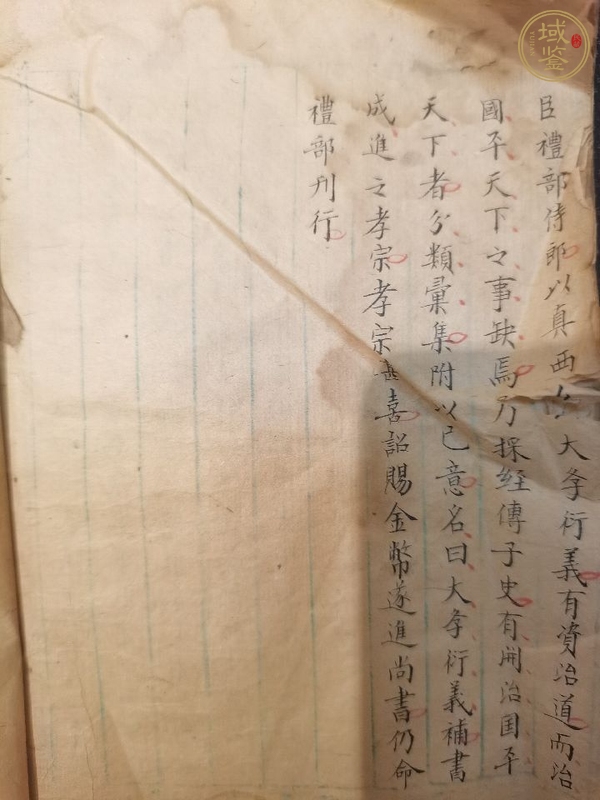 臣禮部侍郎以真西山大孝衍義有資治道而治
國平天下之事缺焉乃採經傳子史有開治国平
天下者分類彙集附以己意名曰大孝衍義補書
成進之孝宗孝宗甚喜詔賜金幣遂進尚書仍命
禮部刋行
域鉴